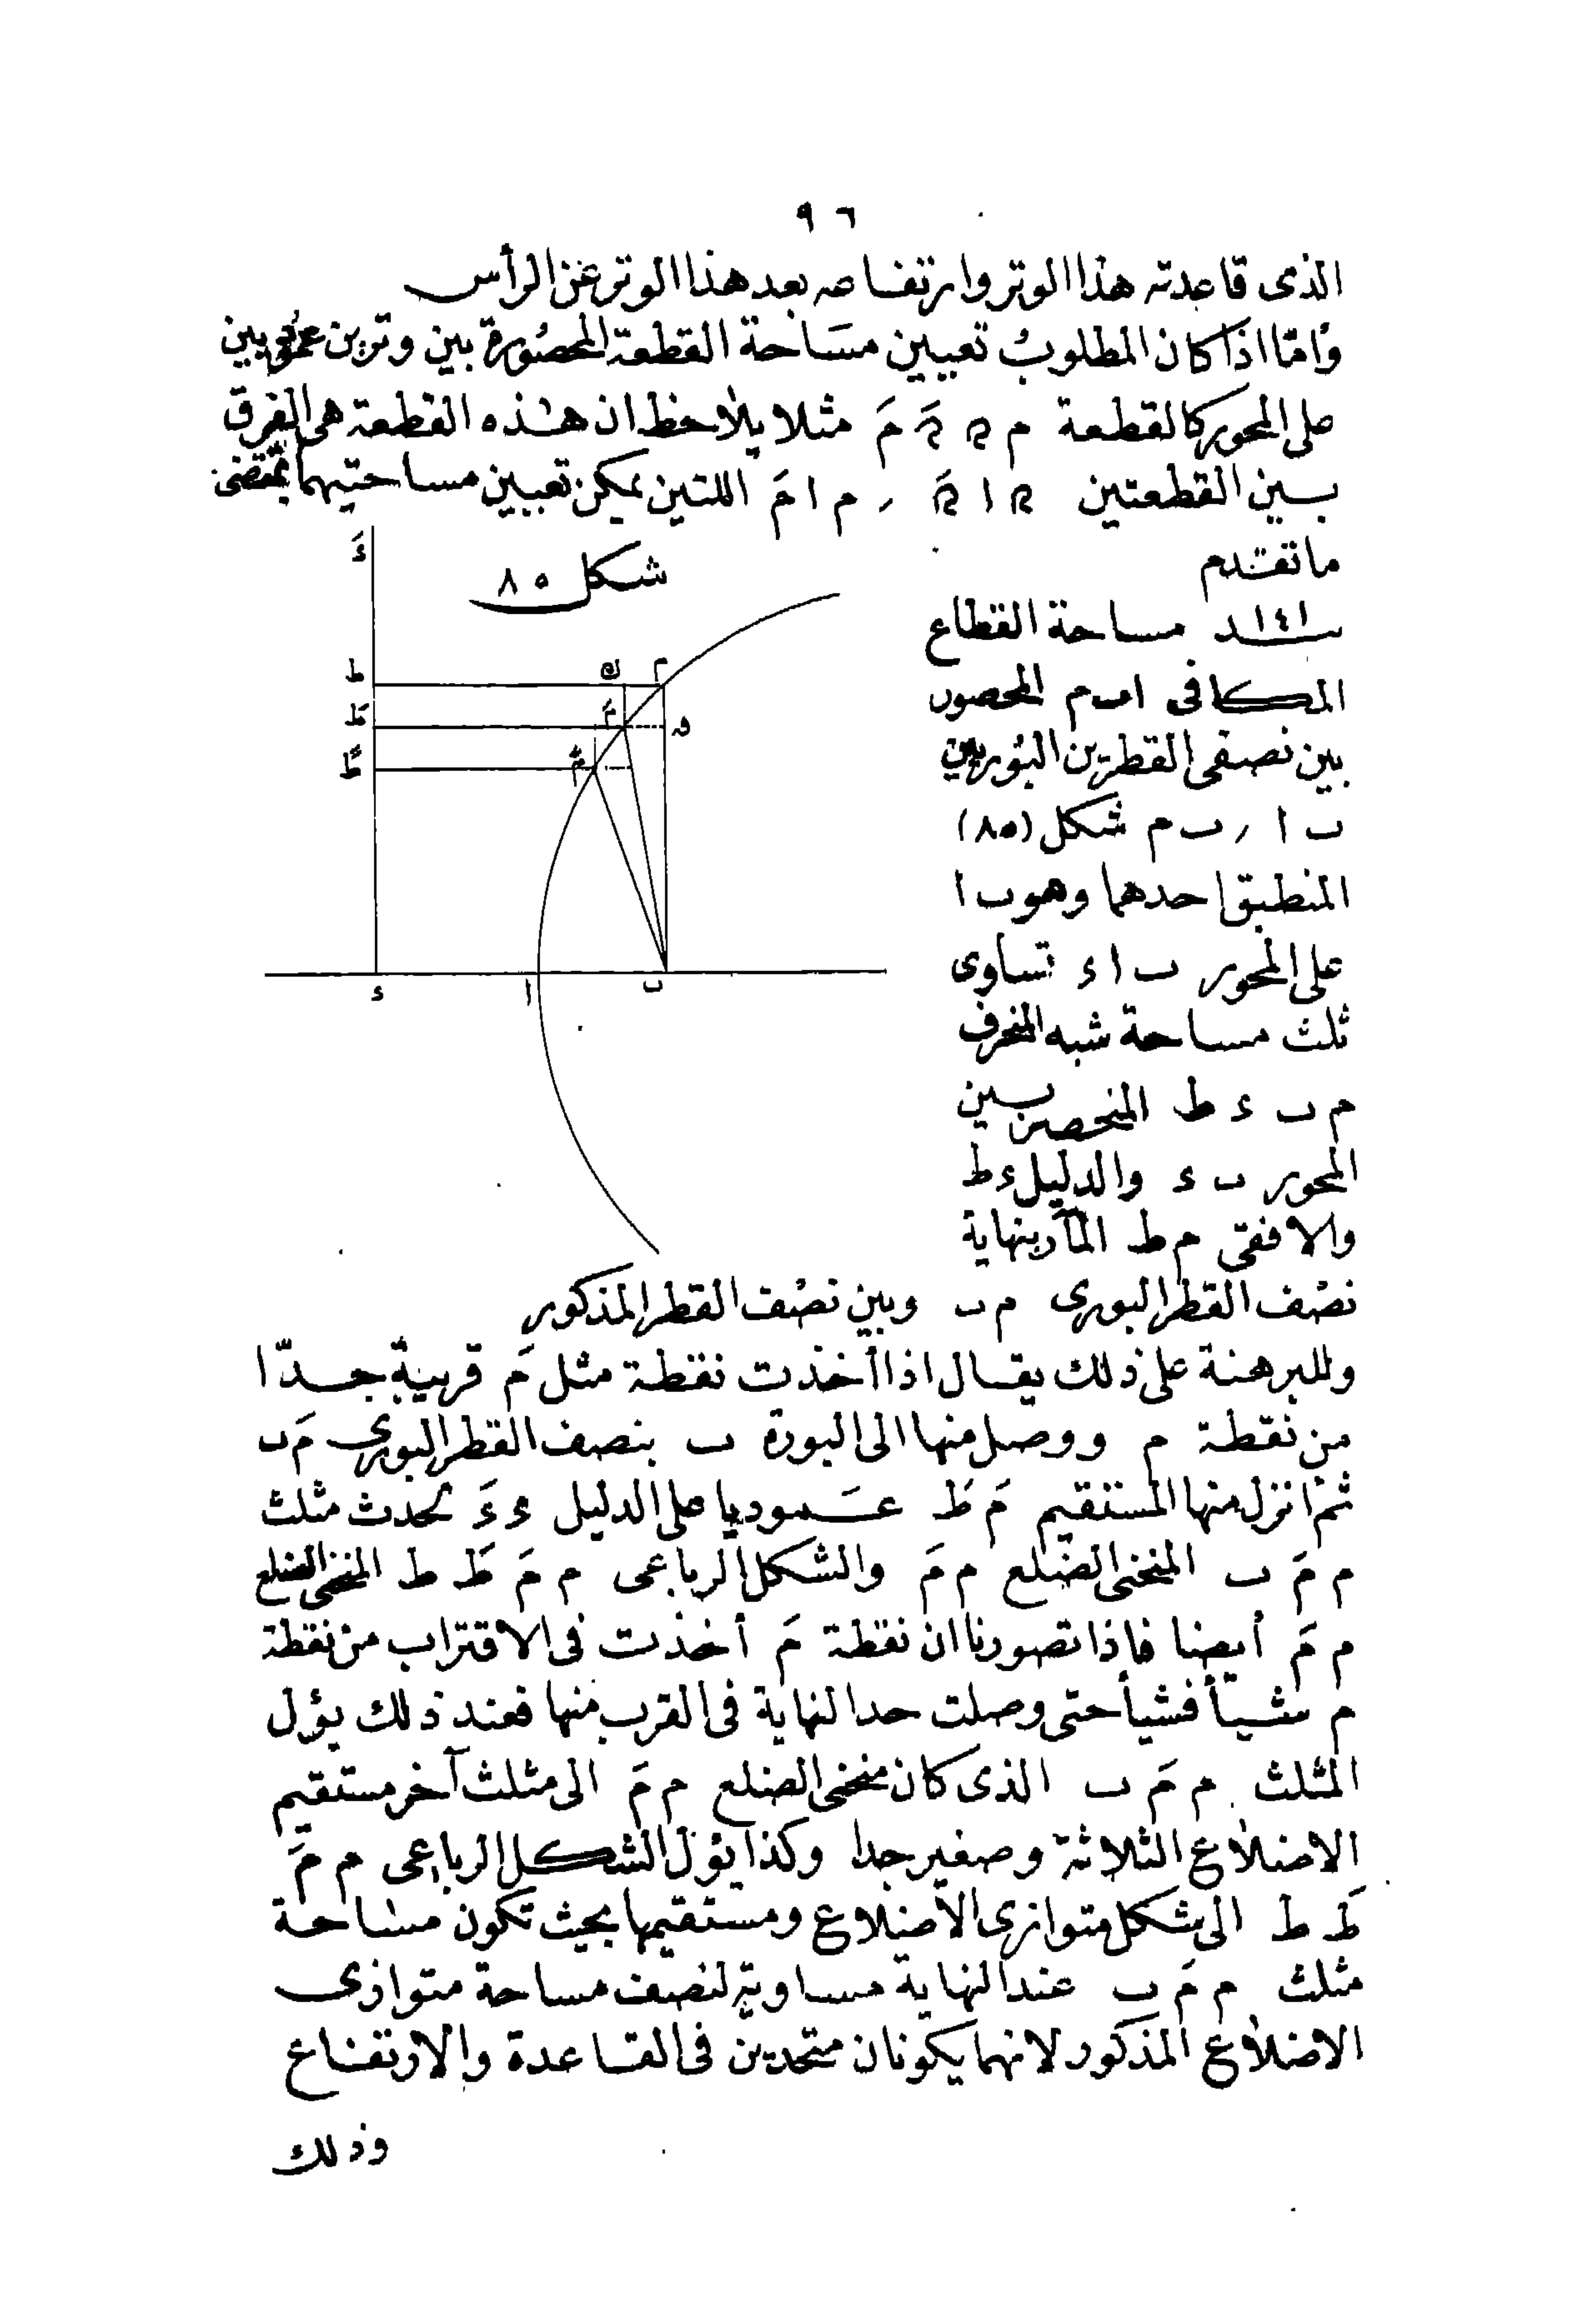 ٩٦
الذى قاعدته هذا الوتر وارتفاعه بعد هذا الوتر عن الرأس
وأمّا اذا كان المطلوب تعيين مسَاحة القطعة المحصُورة بين وترين عموديين
على المحور كالقطعة م ﻫ ﻫَ مَ مثلا يلاحظ ان هذه القطعة هى الفرق
بين القطعتين ﻫ ا ﻫَ ر م ا مَ اللتين يمكن تعيين مساحتيهما بمقتضى
ما تقدم
شكل ٨٥
ءَ
ط
ك
م
طَ
مَ
ص
طً
مً
ء
ا
ب
١٤١ بند مساحة القطاع
المكافى ا ب م المحصور
بين نصفى القطرين البُوريين
ب ا ر ب م شكل (٨٥)
المنطبق احدهما وهو ب ا
على المحور ب ا ء تساوى
ثلث مساحة شبه المنحرف
م ب ء ط المنحصر بين
المحور ب ء والدليل ء ط
والافقى م ط المآر بنهاية
نصْف القطر البورى م ب وبين نصْف القطر المذكور
وللبرهنة على ذلك يقال اذا أخذت نقطة مثل مَ قريبة جدّا
من نقطة م ووصل منها الى البورة ب بنصف القطر البورى مَ ب
ثم انزل منها المستقيم مَ طَ عموديا على الدليل ء ءَ تحدث مثلث
م مَ ب المنحنى الضلع م مَ والشكل الرباعى م مَ طَ ط المنحنى الضلع
م مَ أيضا فاذا تصورنا ان نقطة مَ أخذت فى الاقتراب من نقطة
م شيأ فشيأ حتى وصلت حد النهاية فى القرب منها فعند ذلك يؤل
المثلث م مَ ب الذى كان منحنى الضلع م مَ الى مثلث آخر مستقيم
الاضلاع الثلاثة وصغير جدا وكذا يؤل الشكل الرباعى م مَ
طَ ط الى شكل متوازى الاضلاع ومستقيمها بحيث تكون مساحة
مثلث م مَ ب عند النهاية مساوية لنصف مساحة متوازى
الاضلاع المذكور لانهما يكونان متحدين فى القاعدة والارتفاع
وذلك